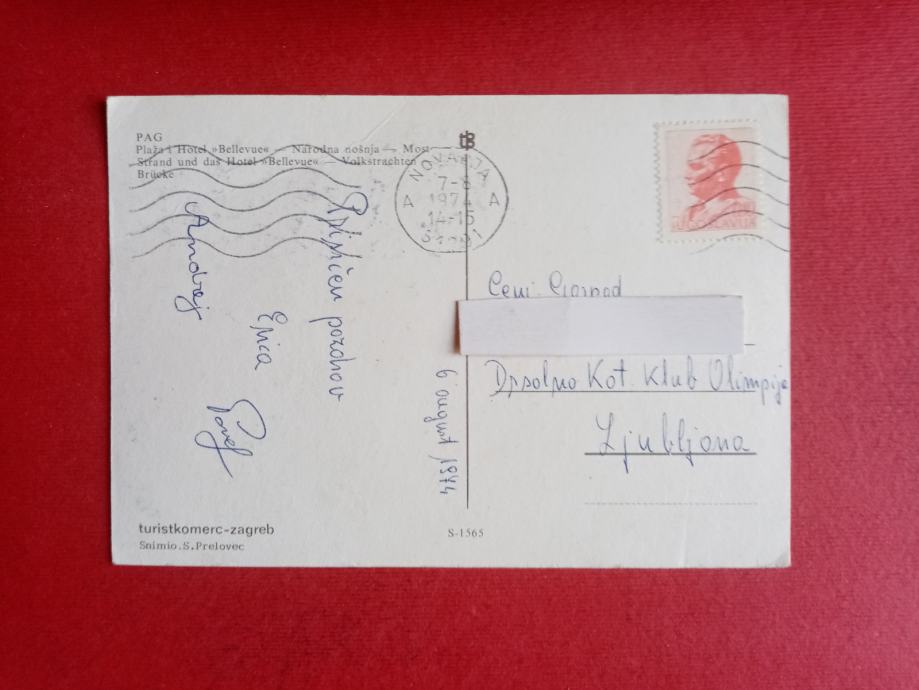 PAG
Plaža i Hotel »Bellevue« — Narodna nošnja — Most
Strand und das Hotel »Bellevue« — Volkstrachten
Brücke
NOVALJA
7-8
1974
14-15
A A
JUGOSLAVIJA
Prisrčen pozdrav
Erica
Andrej
Pavel
6 august 1974
Ceni. Gospod
Drsalno Kot. Klub Olimpija
Ljubljana
turistkomerc-zagreb
Snimio.S.Prelovec
S-1565